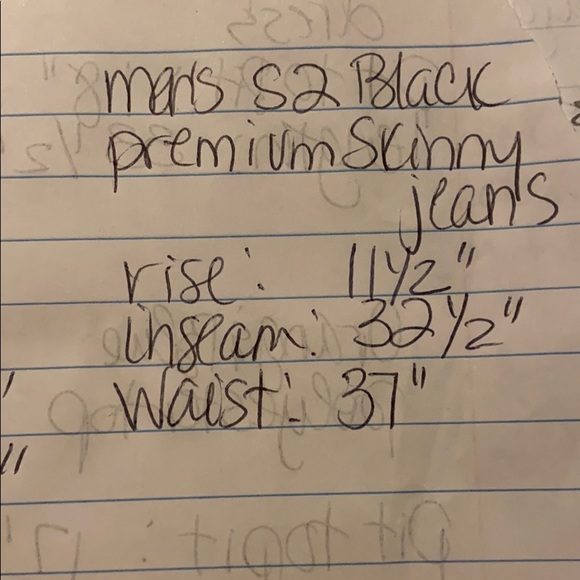 men's S2 Black
premium Skinny
jeans
rise: 11 1/2"
inseam: 32 1/2"
Waist: 37"